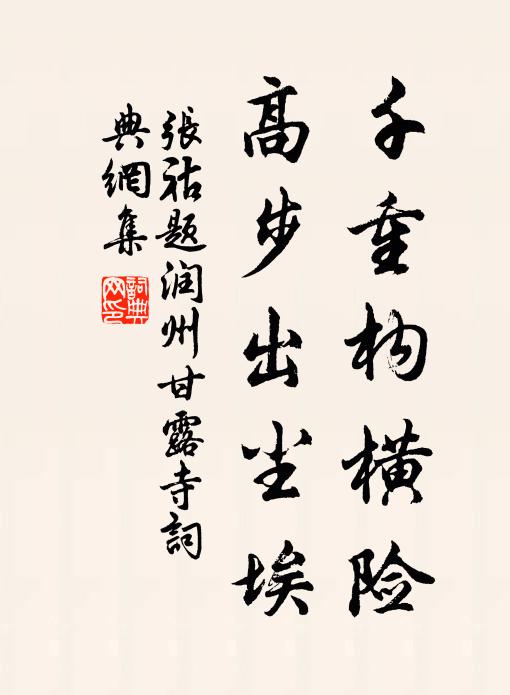 千重构横险
高步出尘埃
張祜题润州甘露寺詞
典網集
詞典网印